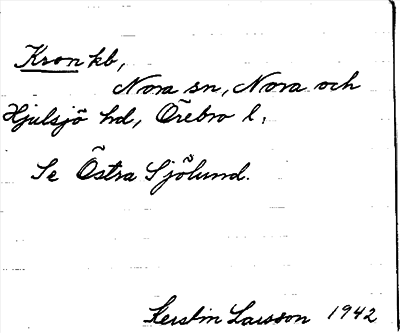 Kron kb,
Nora sn, Nora och
Hjulsjö hd, Örebro l.
Se Östra Sjölund.
Kerstin Larsson 1942